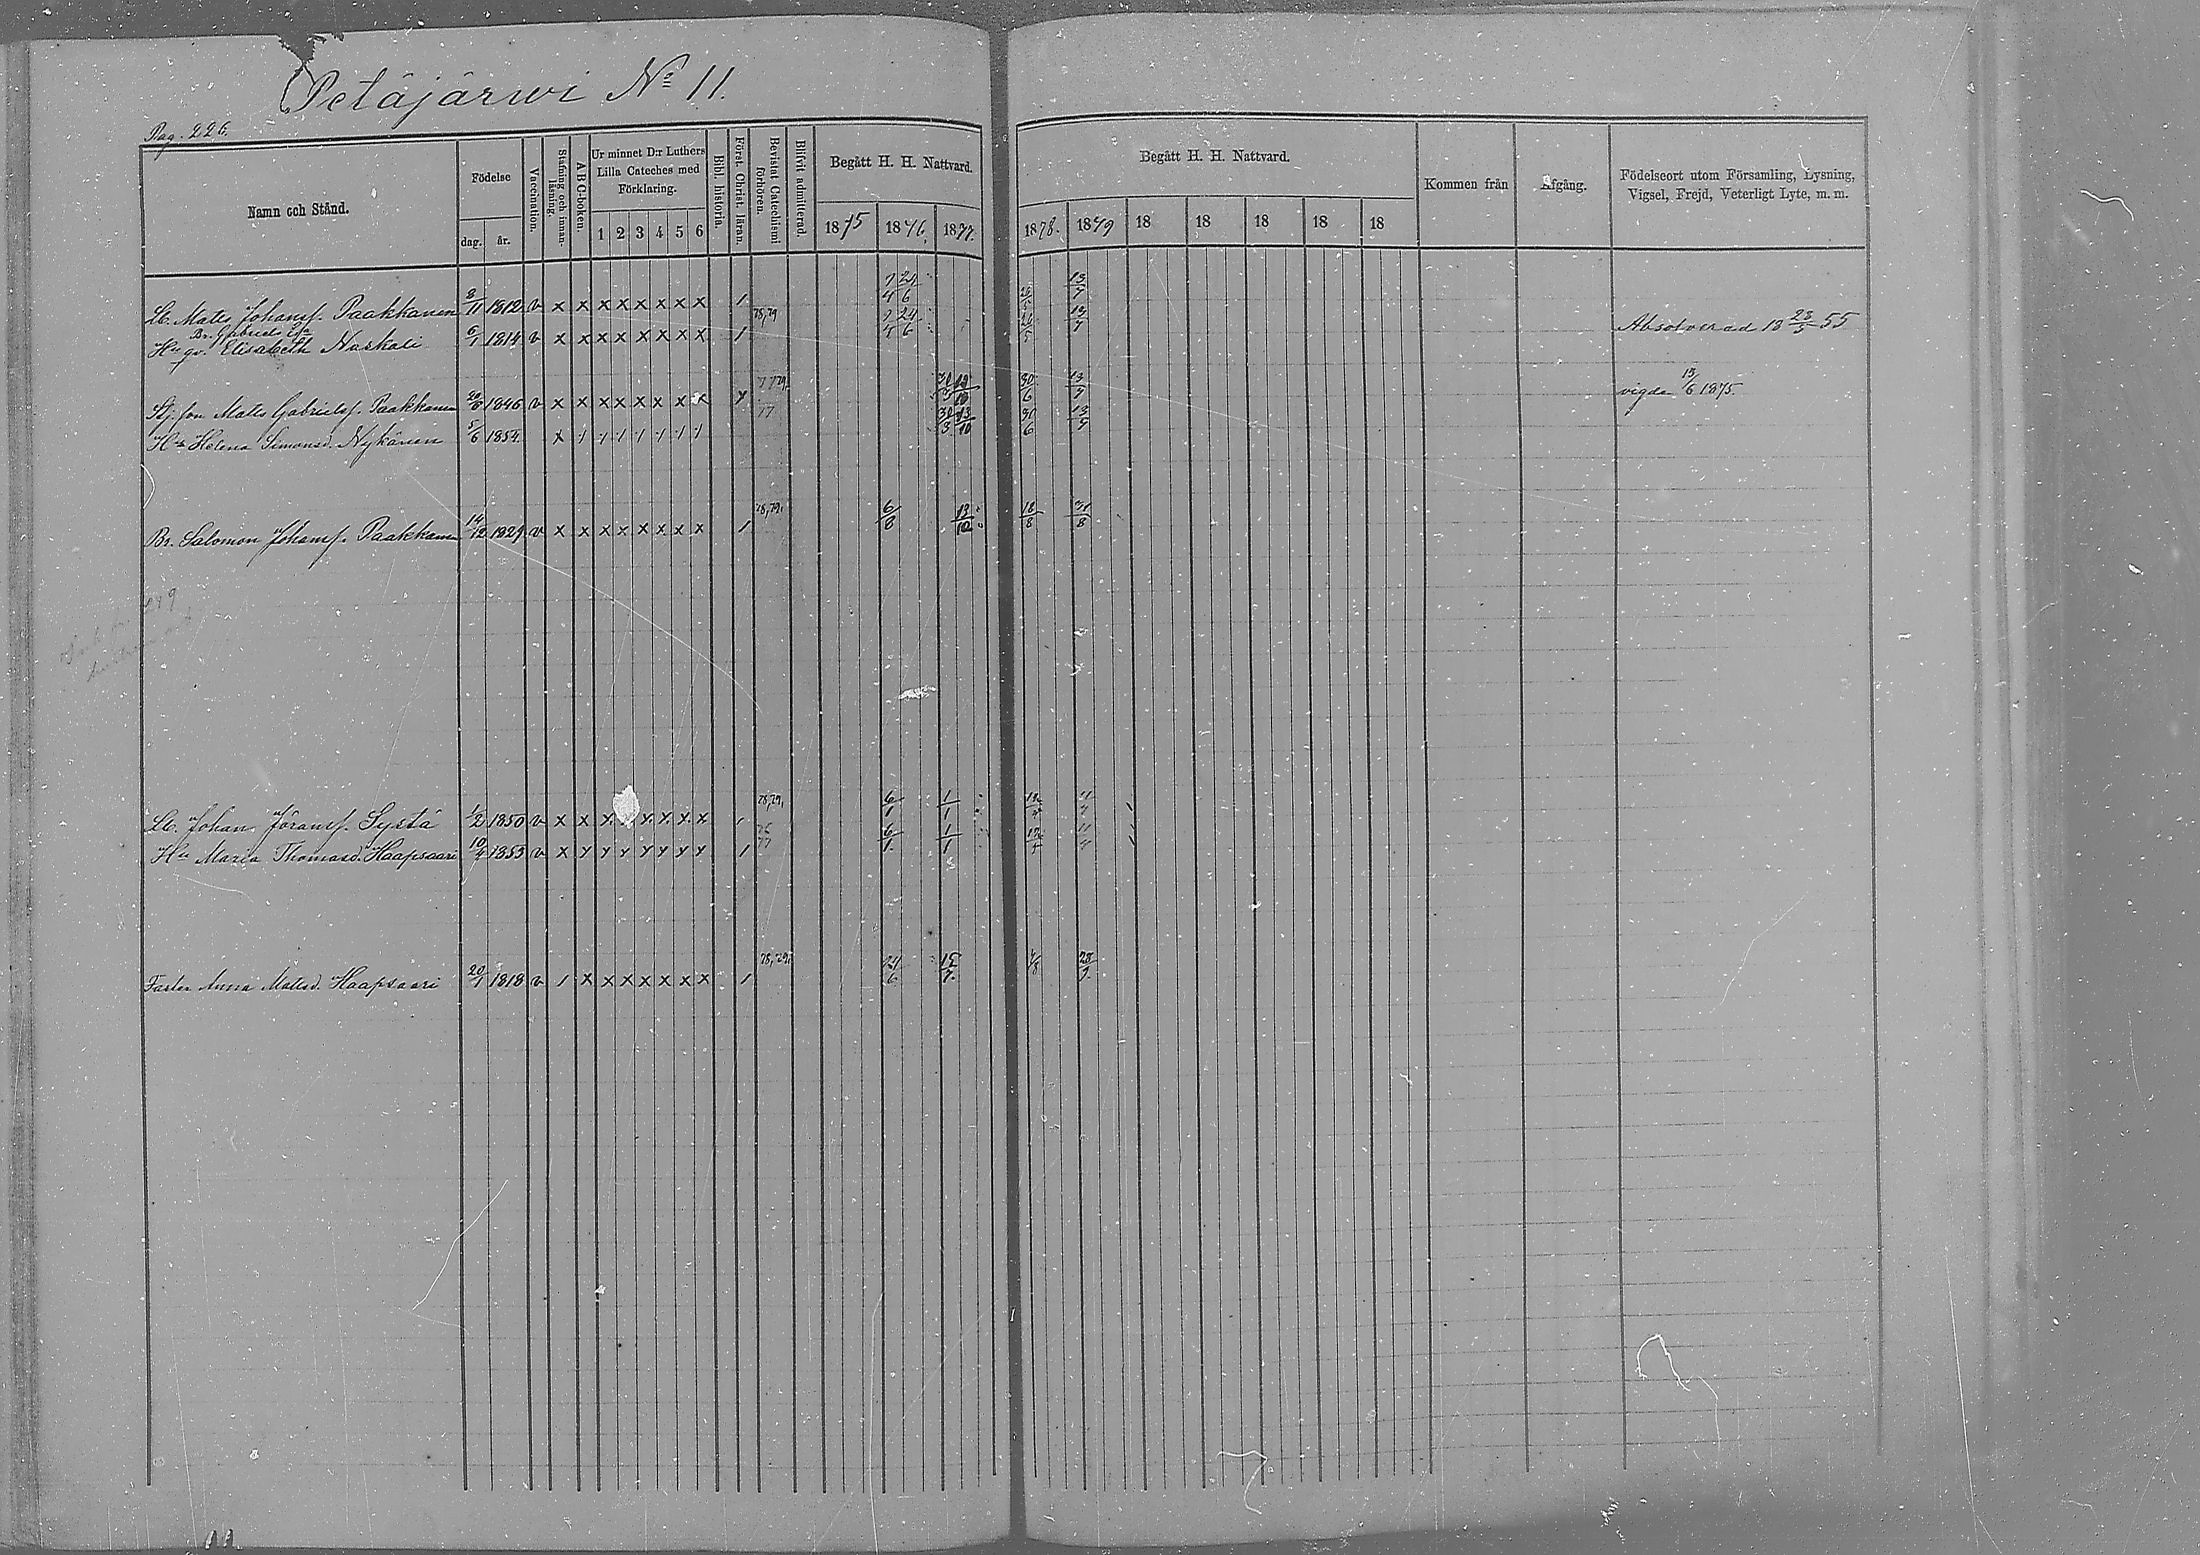 Petäjärwi No 11.
Pag. 226.
Namn och Stånd.
Födelse
dag. år.
Vaccination.
Stafning och innanläsning.
A B C-boken.
Ur minnet D:r Luthers Lilla Cateches med Förklaring.
1 2 3 4 5 6
Bibl. historia.
Först. Christ. läran.
Bevistat Catechismi förhören.
Blifvit admitterad.
Begått H. H. Nattvard.
1875 1876. 1877.
Begått H. H. Nattvard.
1878. 1879 18 18 18 18 18
Kommen från
Afgång.
Födelseort utom Församling, Lysning, Vigsel, Frejd, Veterligt Lyte, m. m.
Mats Johanss. Paakkanen 8/11 1812 v x x x x x x x x 1 78,79 7/4 24/6 26/5 13/7
Br. Gabriels Eka
Hu gv. Elisabeth Naskali 6/1 1814 v x x x x x x x x 1 7/4 24/6 13/7 Absolverad 18 28/3 55
Stj. son Mats Gabrielss. Paakkanen 20/8 1846 v x x x x x x x x 30/6 13/7 vigda 13/6 1875.
Hu Helena Simonsd. Nykänen 5/6 1854 x 77 30/3 13/10 30/6 13/7
Br. Salomon Johanss. Paakkanen 14/12 1829 v x x x x x x x x 1 78,79. 6/8 13/10 18/8 31/8
Johan Jöranss. Systä 1/2 1850 v x x x x x x x 78,79, 6/1 1/1
Hu Maria Thomasd. Haapsaari 10/4 1853 v x 1 77 6/1 1/1
Faster Anna Matsd. Haapsaari 20/1 1818 v 1 x x x x x x x 1 78,79, 24/6 15/7. 28/9.